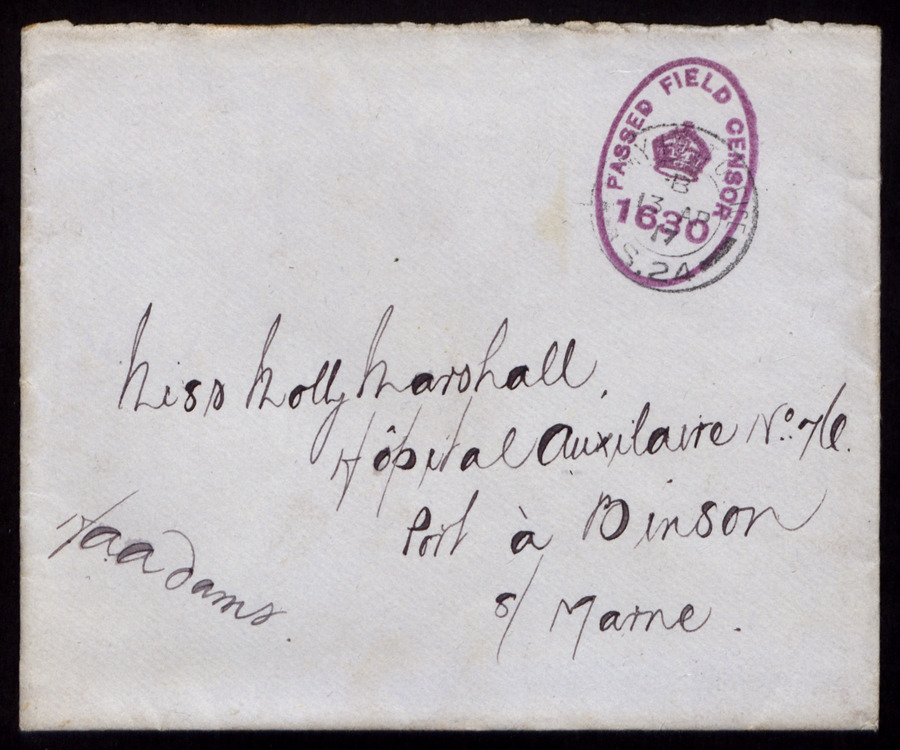 PASSED FIELD CENSOR
1630
B
13 AP
17
S.2A
Miss Molly Marshall,
Hôpital Auxilaire No. 76.
Port à Binson
s/ Marne.
HaAdams.